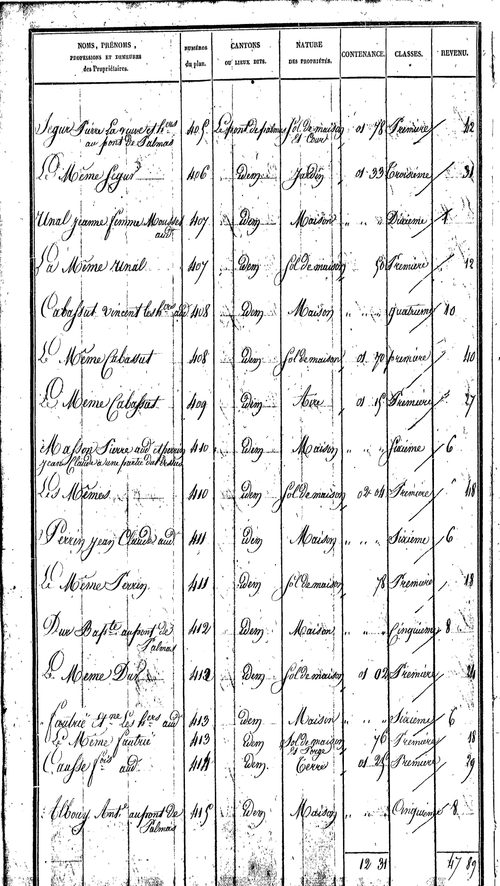 NOMS, PRÉNOMS, PROFESSIONS ET DEMEURES des Propriétaires. NUMÉROS du plan. CANTONS OU LIEUX DITS. NATURE DES PROPRIÉTÉS. CONTENANCE. CLASSES. REVENU.
Segur Pierre la veuve et hers au pont de Palmas 405 Le pont de palmas Sol de maison et Cour 01 78 Première 42
Le Même Segur 406 idem Jardin 01 33 Troisième 31
Unal jeanne femme aud. 407 idem Maison " " " Dixième 1
La Même Unal 407 idem Sol de maison 50 Première 12
Cabassut vincent les hers aud 408 idem Maison " " " quatrieme 10
Le Même Cabassut 408 idem Sol de maison 01 70 première 40
Le Meme Cabassut 409 idem Aire 01 15 Première 27
Masson Pierre aud et perrin jean Claude a une partie du dessus 410 idem Maison " " " Sixieme 6
Les Mêmes 410 idem Sol de maison 02 04 Première 48
Perrin jean Claude aud 411 idem Maison " " " Sixième 6
Le Même Perrin 411 idem Sol de maison 78 Premiere 18
Dur Bapte au pont de Palmas 412 idem Maison " " " Cinquieme 8
Le Meme Dur 412 idem Sol de maison 01 02 Première 24
les hers aud 413 idem Maison " " " Sixieme 6
Le Même 413 idem Sol de maison et forge 76 Première 18
Causse fois aud 414 idem Terre 01 25 Première 29
Albouy Ante au pont de Palmas 415 idem Maison " " " Cinquieme 8
12 31 47 89